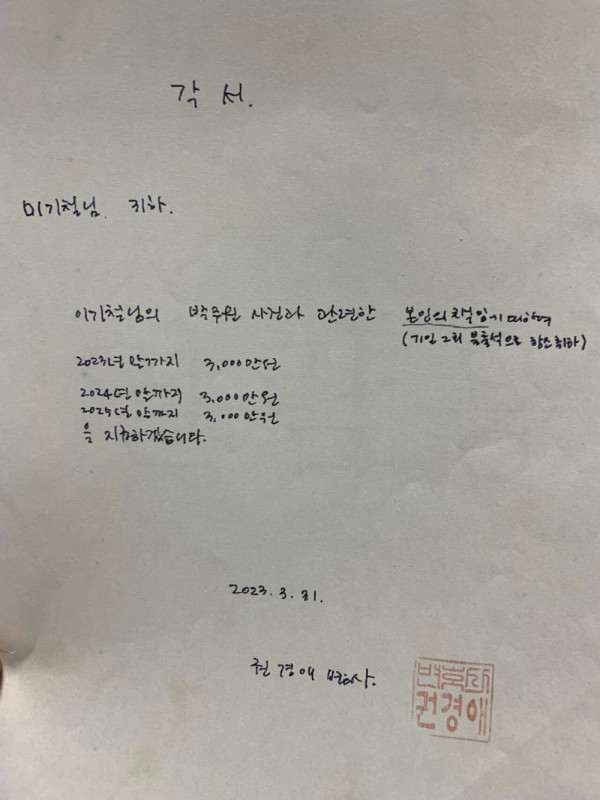 각 서.
이기철님. 귀하.
이기철님의 박주원 사건과 관련한 본인의 과실 임에 대하여
(기일 2회 불출석으로 항소취하)
2023년 말까지 3,000만원
2024년 말까지 3,000만원
2025년 말까지 3,000만원
을 지급하겠습니다.
2023. 3. 31.
권경애 변호사.
변호사
권경애